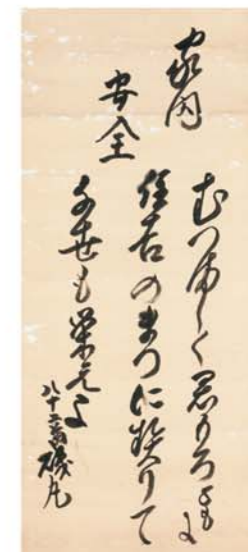 家内
安全
むつましく君もろともに
住吉のまつに契りて
千世も栄えよ
磯丸